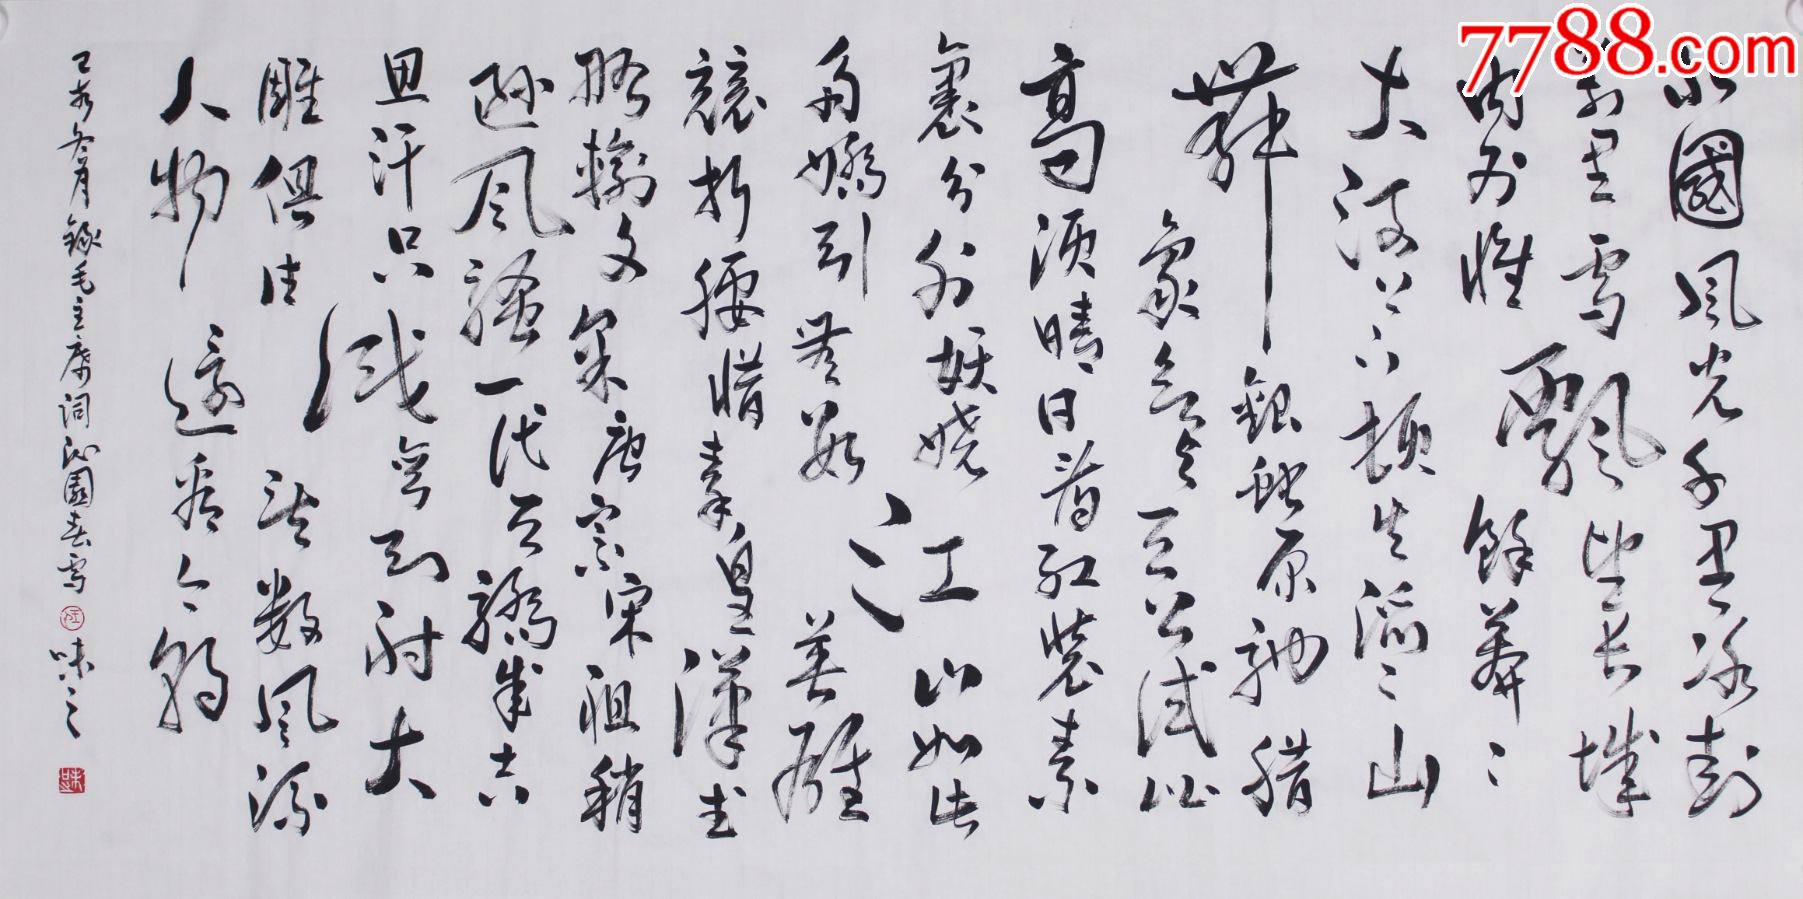 7788.com
北國風光千里冰封
萬里雪飄望長城
內外惟餘莽〻
大河上下頓失滔〻山
舞銀蛇原馳腊
象欲與天公試比
高須晴日看紅裝素
裹分外妖嬈江山如此
多嬌引無數英雄
競折腰惜秦皇漢武
略輸文采唐宗宋祖稍
遜風騷一代天驕成吉
思汗只識彎弓射大
雕俱往矣数風流
人物還看今朝
己亥冬月錄毛主席詞沁園春雪 味之